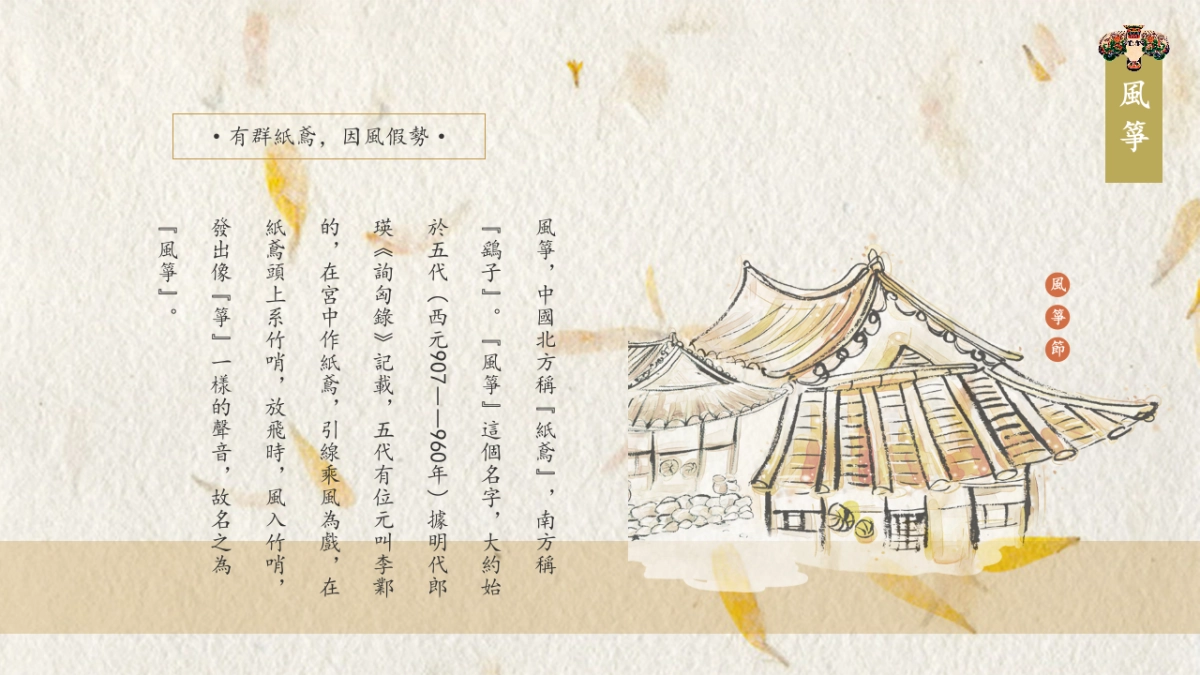 風箏
有群紙鳶，因風假勢
風箏，中國北方稱『紙鳶』，南方稱
『鷂子』。『風箏』這個名字，大約始
於五代（西元907——960年）據明代郎
瑛《詢匈錄》記載，五代有位元叫李鄴
的，在宮中作紙鳶，引線乘風為戲，在
紙鳶頭上系竹哨，放飛時，風入竹哨，
發出像『箏』一樣的聲音，故名之為
『風箏』。
風箏節